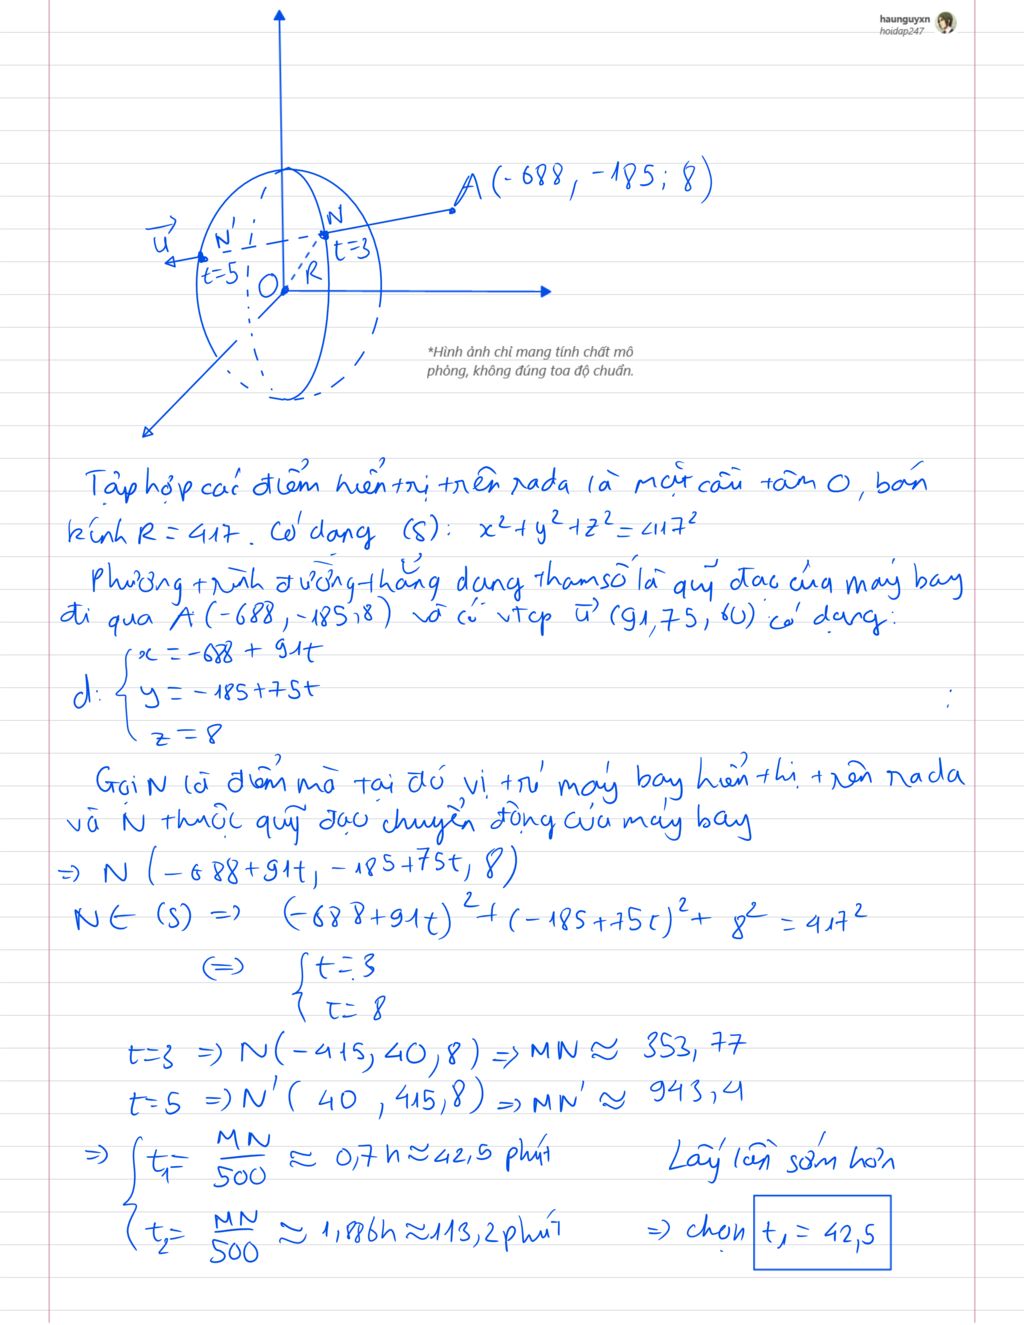 haunguyxn
hoidap247
A(-688, -185; 8)
N
N'
t=3
u
t=5
O
R
*Hình ảnh chỉ mang tính chất mô
phỏng, không đúng toạ độ chuẩn.
Tập hợp các điểm hiển trị trên rada là mặt cầu tâm O, bán
kính R = 417. Có dạng (S): x²+y²+z²=417²
Phương trình đường thẳng dạng tham số là quỹ đạc của máy bay
đi qua A(-688, -185, 8) và có vtcp u (91, 75, 0) có dạng:
x = -688 + 91t
d: y = -185+75t :
z = 8
Gọi N là điểm mà tại đó vị trí máy bay hiển thị trên rada
và N thuộc quỹ đạo chuyển động của máy bay
=> N (-688+91t, -185+75t, 8)
N ∈ (S) => (-688+91t)² + (-185+75t)² + 8² = 417²
(=) t=3
t=8
t=3 => N(-415, 40, 8) => MN ≈ 353,77
t=5 => N'( 40 , 415, 8) => MN' ≈ 943,4
=> t₁= MN/500 ≈ 0,7h ≈ 42,5 phút Lấy lần sớm hơn
t₂= MN/500 ≈ 1,886h ≈ 113,2 phút => chọn t₁ = 42,5